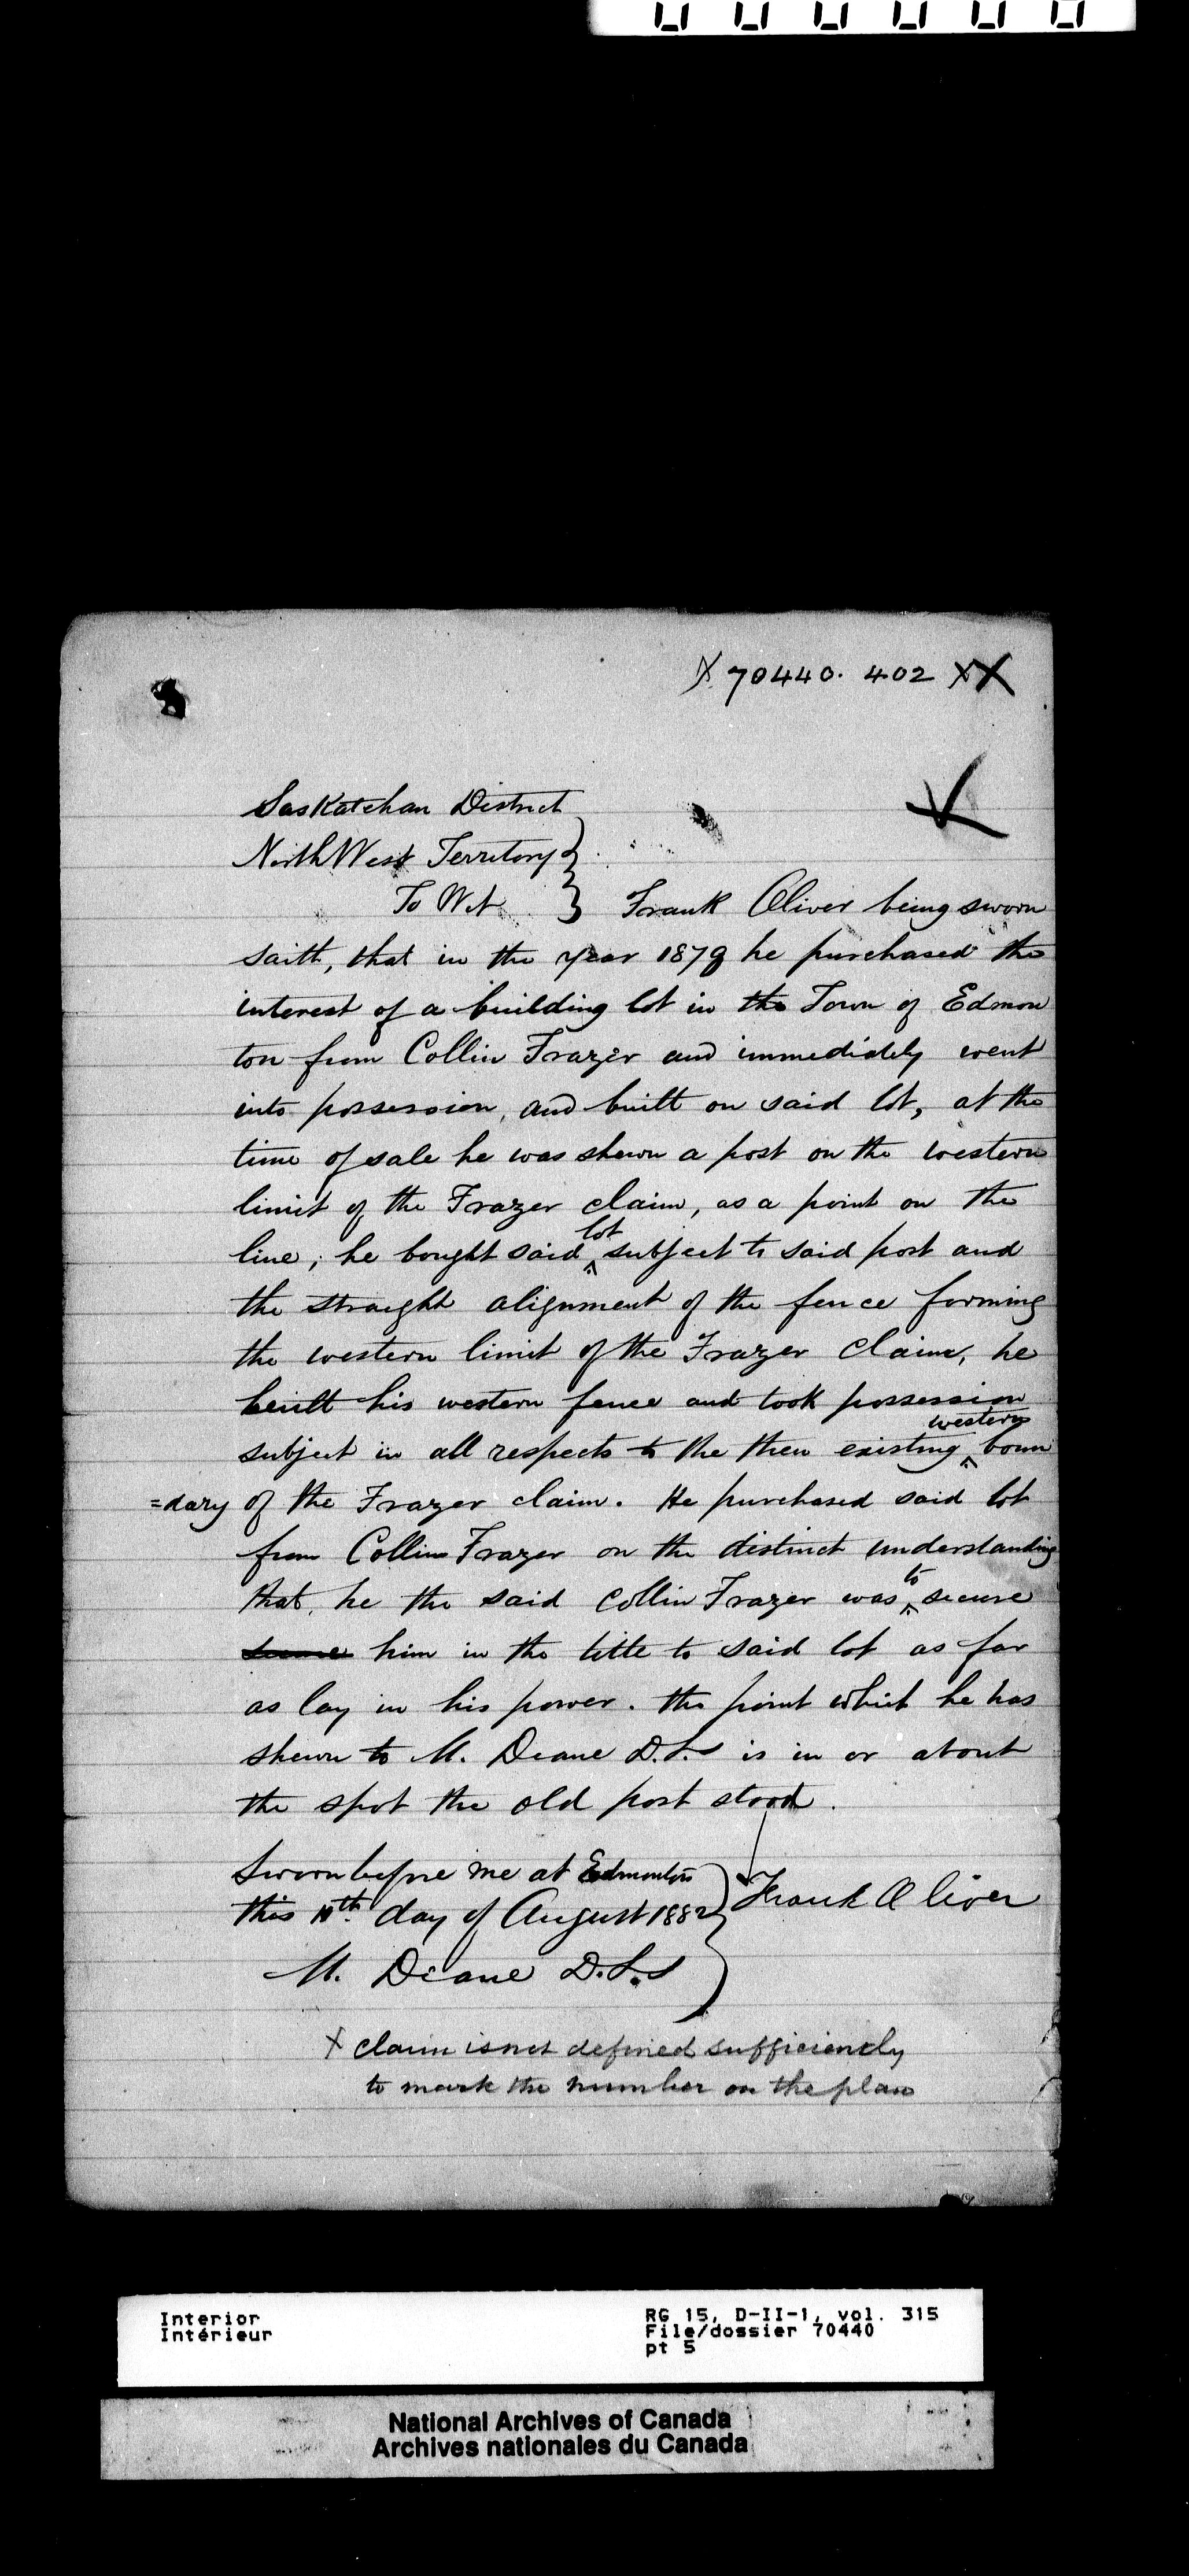 X 70440. 402 XX
Saskatchan District
North West Territory
To Wit } Frank Oliver being sworn
saith, that in the year 1879 he purchased the
interest of a building lot in the Town of Edmon
ton from Collin Frazer and immediately went
into possession, and built on said lot, at the
time of sale he was shewn a post on the western
limit of the Frazer claim, as a point on the
line, he bought said lot subject to said post and
the straight alignment of the fence forming
the western limit of the Frazer claim, he
built his western fence and took possession
subject in all respects to the then existing western boun
=dary of the Frazer claim. He purchased said lot
from Collin Frazer on the distinct understanding
that, he the said Collin Frazer was to secure
him in the title to said lot as far
as lay in his power. the point which he has
shewn to M. Deane D.L.S is in or about
the spot the old post stood.
Sworn before me at Edmonton
this 10th day of August 1882 } Frank Oliver
M. Deane D.L.S
X claim is not defined sufficiently
to mark the number on the plan
Interior
Intérieur
RG 15, D-II-1, vol. 315
File/dossier 70440
pt 5
National Archives of Canada
Archives nationales du Canada